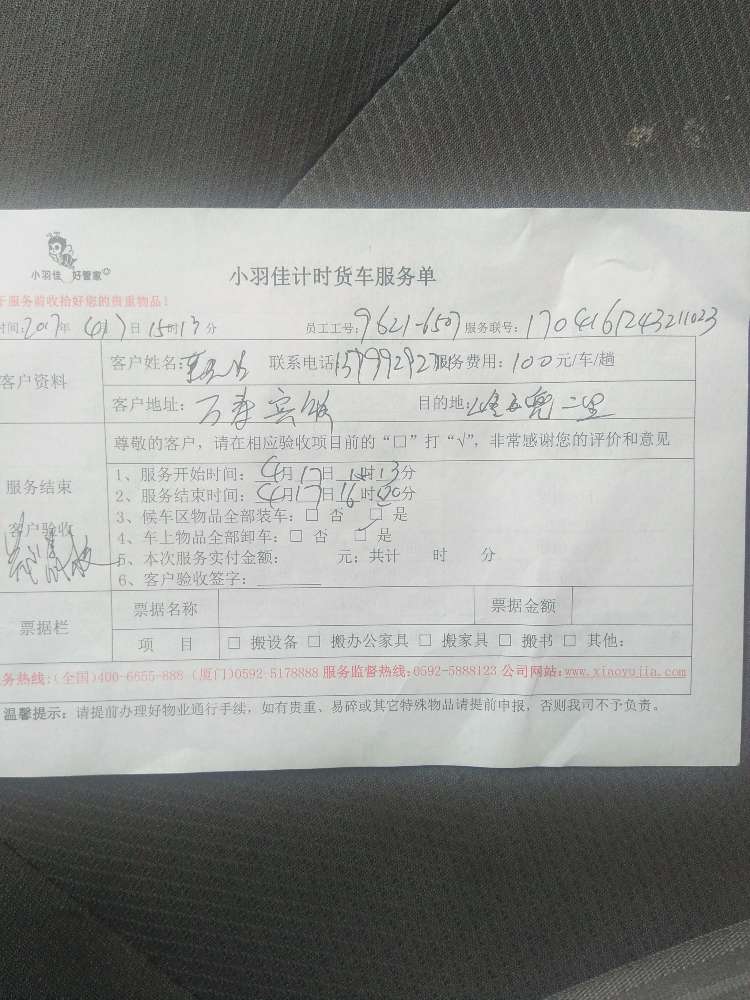 小羽佳 好管家
小羽佳计时货车服务单
于服务前收拾好您的贵重物品！
时间:2017年 4月17日 15时13分 员工工号:9621-6507 服务联号:1704161243211023
客户资料
客户姓名: 联系电话 服务费用:100元/车/趟
客户地址:万寿宾馆 目的地: 二里
尊敬的客户，请在相应验收项目前的“□”打“√”，非常感谢您的评价和意见
服务结束
客户验收
1、服务开始时间：4月17日 15时13分
2、服务结束时间：4月17日16时20分
3、候车区物品全部装车：□ 否 □ 是
4、车上物品全部卸车：□ 否 □ 是
5、本次服务实付金额： 元；共计 时 分
6、客户验收签字：
票据栏
票据名称 票据金额
项 目 □ 搬设备 □ 搬办公家具 □ 搬家具 □ 搬书 □ 其他:
务热线:(全国)400-6655-888 (厦门)0592-5178888 服务监督热线:0592-5888123 公司网站:www.xiaoyujia.com
温馨提示：请提前办理好物业通行手续，如有贵重、易碎或其它特殊物品请提前申报，否则我司不予负责。